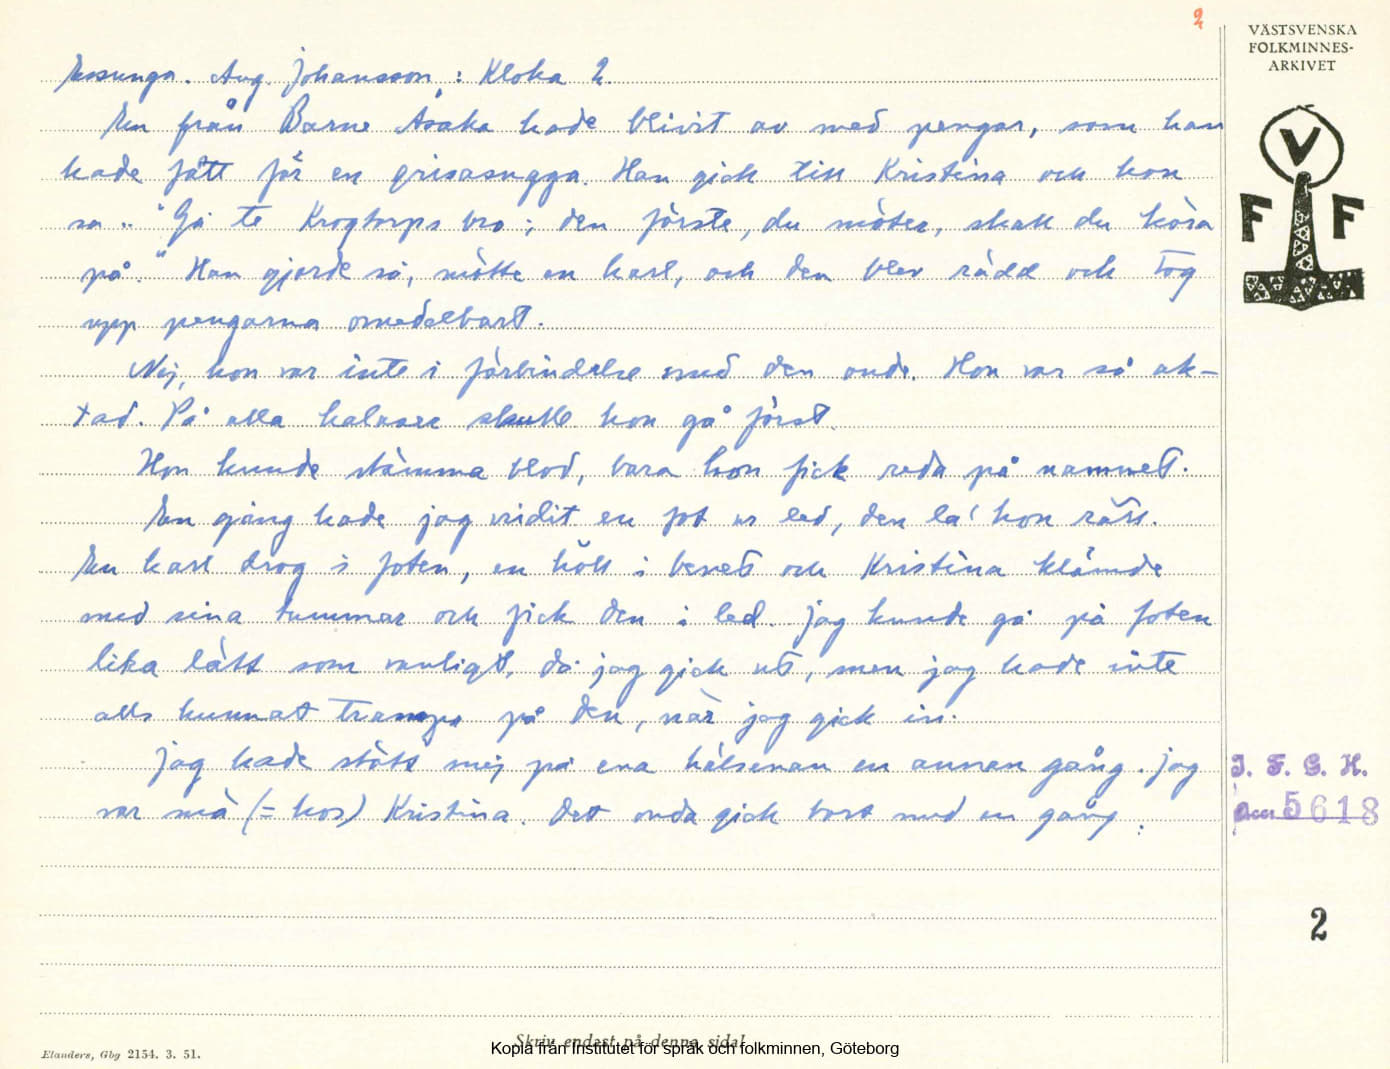 2
VÄSTSVENSKA
FOLKMINNES-
ARKIVET
V
F F
Essunga. Aug. Johansson: Kloka 2.
En från Barne Åsaka hade blivit av med pengar, som han
hade fått för en grisasugga. Han gick till Kristina och hon
sa: "Gå te Krogtorps bro; den förste, du möter, skall du köra
på." Han gjorde så, mötte en karl, och den blev rädd och tog
upp pengarna omedelbart.
Nej, hon var inte i förbindelse med den onde. Hon var så ak-
tad. På alla kalaser skulle hon gå först.
Hon kunde stämma blod, bara hon fick reda på namnet.
En gång hade jag vridit en fot ur led, den la' hon rätt.
En karl drog i foten, en höll i benet och Kristina klämde
med sina tummar och fick den i led. Jag kunde gå på foten
lika lätt som vanligt, då jag gick ut, men jag hade inte
alls kunnat trampa på den, när jag gick in.
Jag hade stött mej på ena hälsenan en annan gång. Jag
var mä (= hos) Kristina. Det onda gick bort med en gång.
I. F. G. H.
Acc 5618
2
Skriv endast på denna sida!
Elanders, Gbg 2154. 3. 51.
Kopia från Institutet för språk och folkminnen, Göteborg